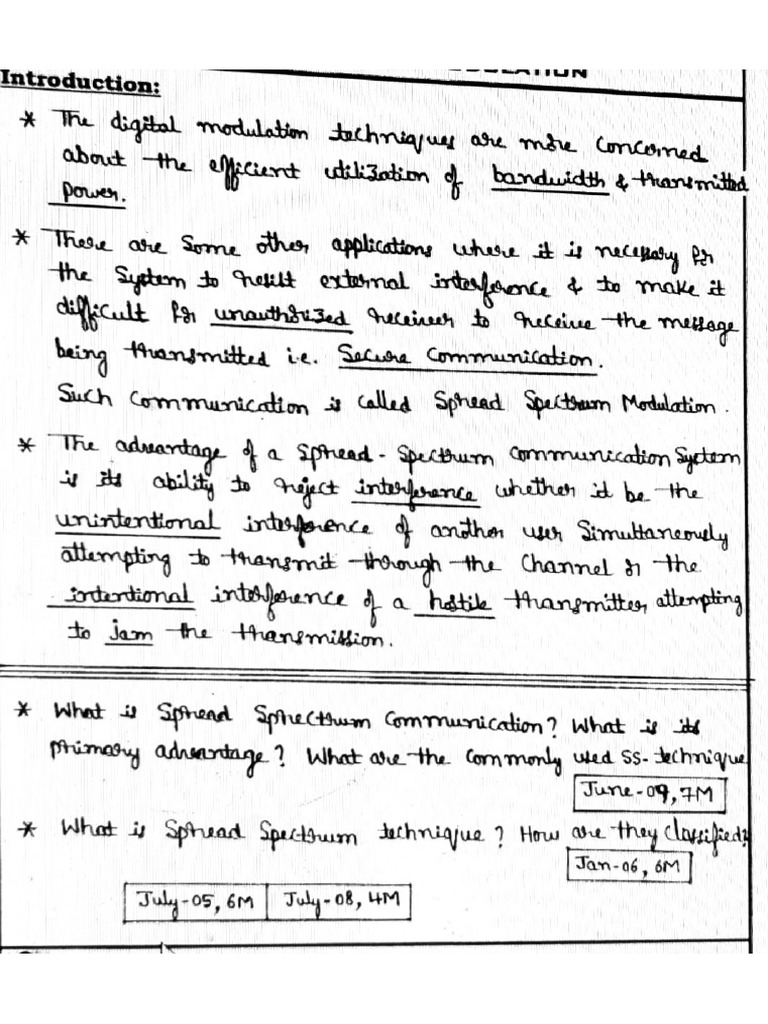 Introduction:
* The digital modulation techniques are more concerned
about the efficient utilization of bandwidth & transmitted
power.
* There are some other applications where it is necessary for
the System to resist external interference & to make it
difficult for unauthorized receiver to receive the message
being transmitted i.e. Secure Communication.
Such Communication is called Spread Spectrum Modulation.
* The advantage of a Spread-Spectrum Communication System
is its ability to reject interference whether it be the
unintentional interference of another user Simultaneously
attempting to transmit through the Channel or the
intentional interference of a hostile transmitter attempting
to jam the transmission.
* What is Spread Sphectrum Communication? What is its
primary advantage? What are the commonly used SS-technique
June-09, 7M
* What is Spread Spectrum technique? How are they classified?
Jan-06, 6M
July-05, 6M July-08, 4M